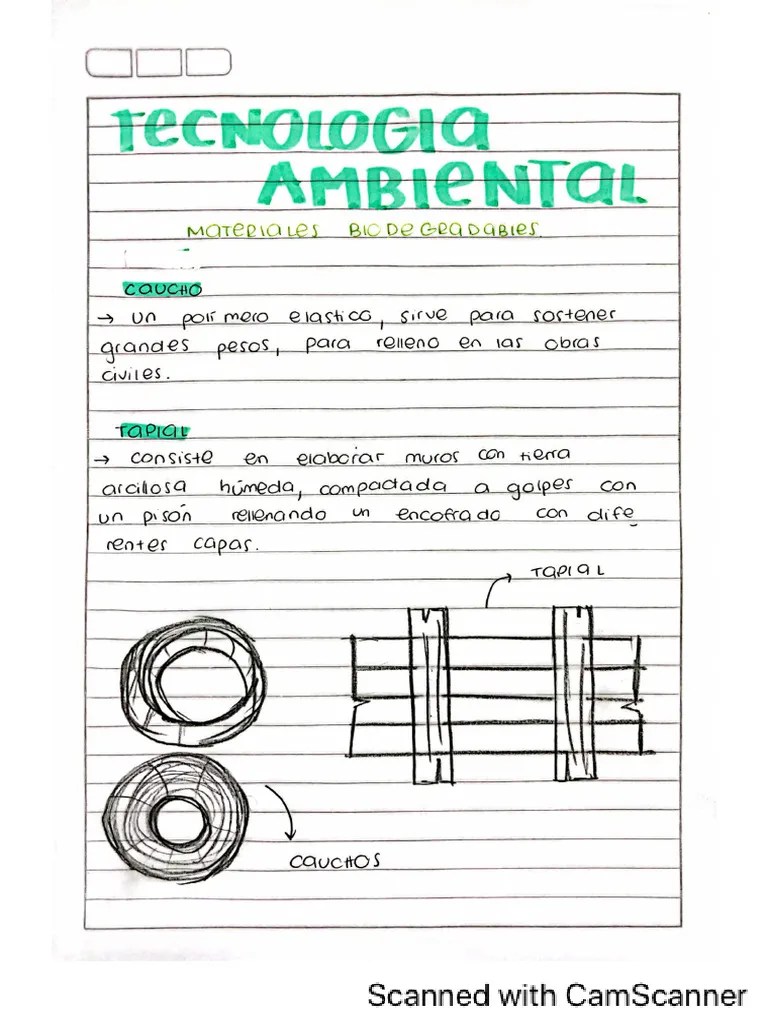 TECNOLOGIA
AMBIENTAL
MATERIALES BIODEGRADABLES
CAUCHO
→ un polímero elastico, sirve para sostener
grandes pesos, para relleno en las obras
civiles.
TAPIAL
→ consiste en elaborar muros con tierra
arcillosa húmeda, compactada a golpes con
un pisón rellenando un encofrado con dife
rentes capas.
TAPIAL
CAUCHOS
Scanned with CamScanner